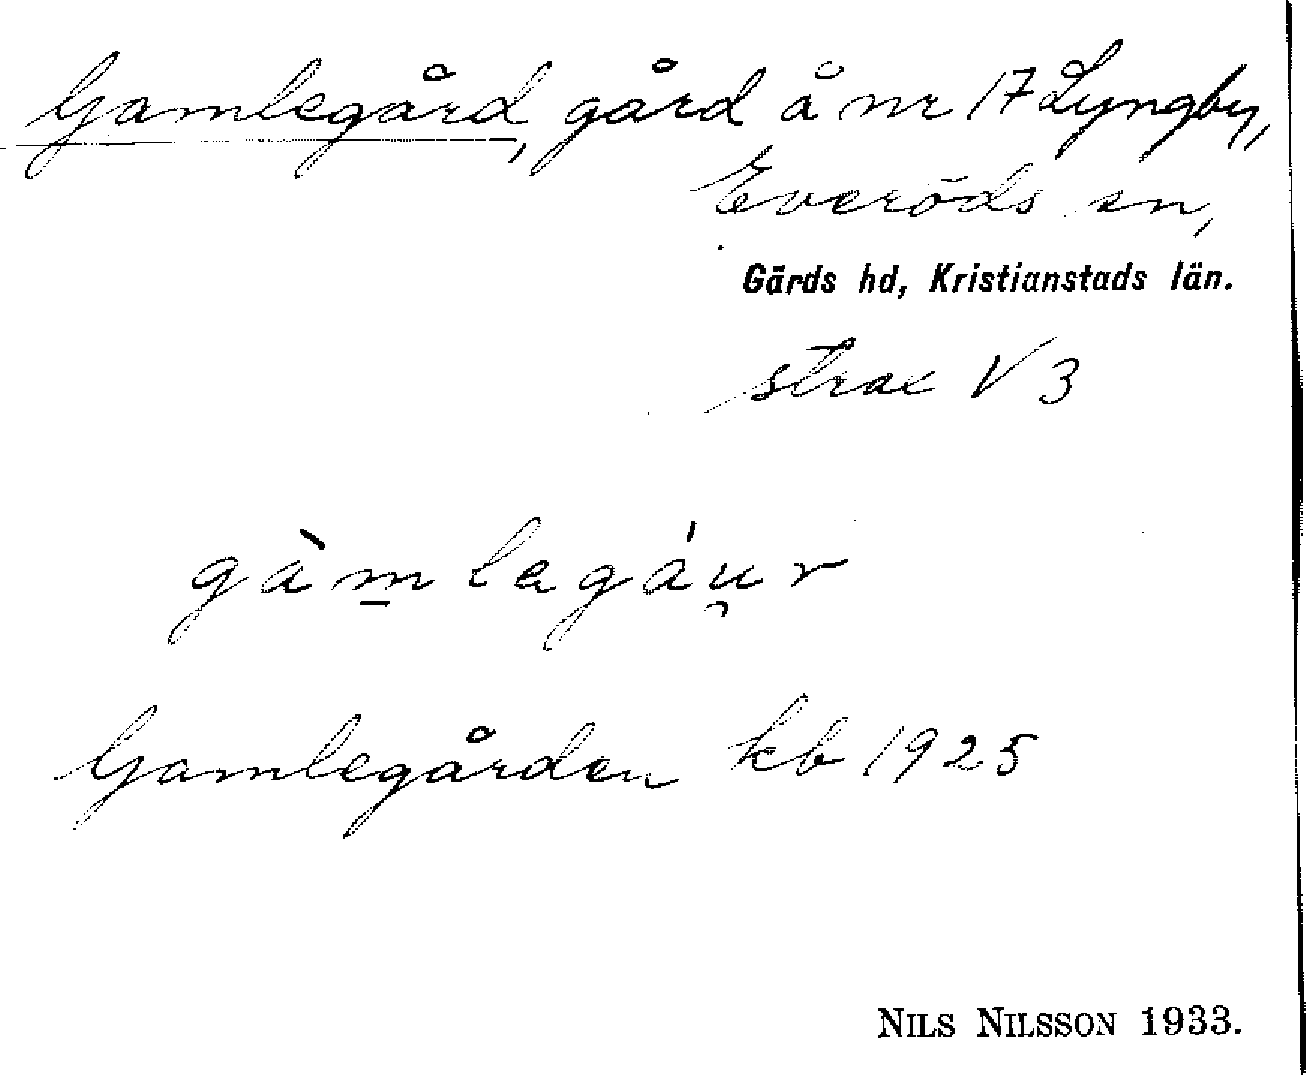 Gamlegård, gård å nr 17 Lyngby,
Everöds sn,
Gärds hd, Kristianstads län.
strax V 3
gàm̱lagáu̯r
Gamlegården kb 1925
NILS NILSSON 1933.